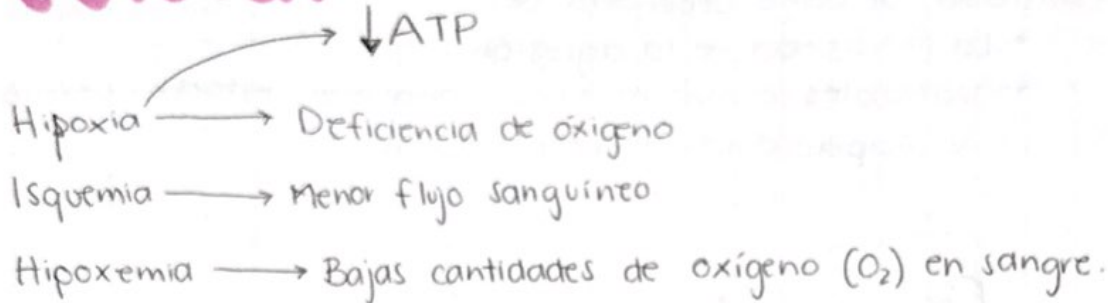 ↓ATP
Hipoxia → Deficiencia de óxigeno
Isquemia → Menor flujo sanguíneo
Hipoxemia → Bajas cantidades de oxígeno (O₂) en sangre.